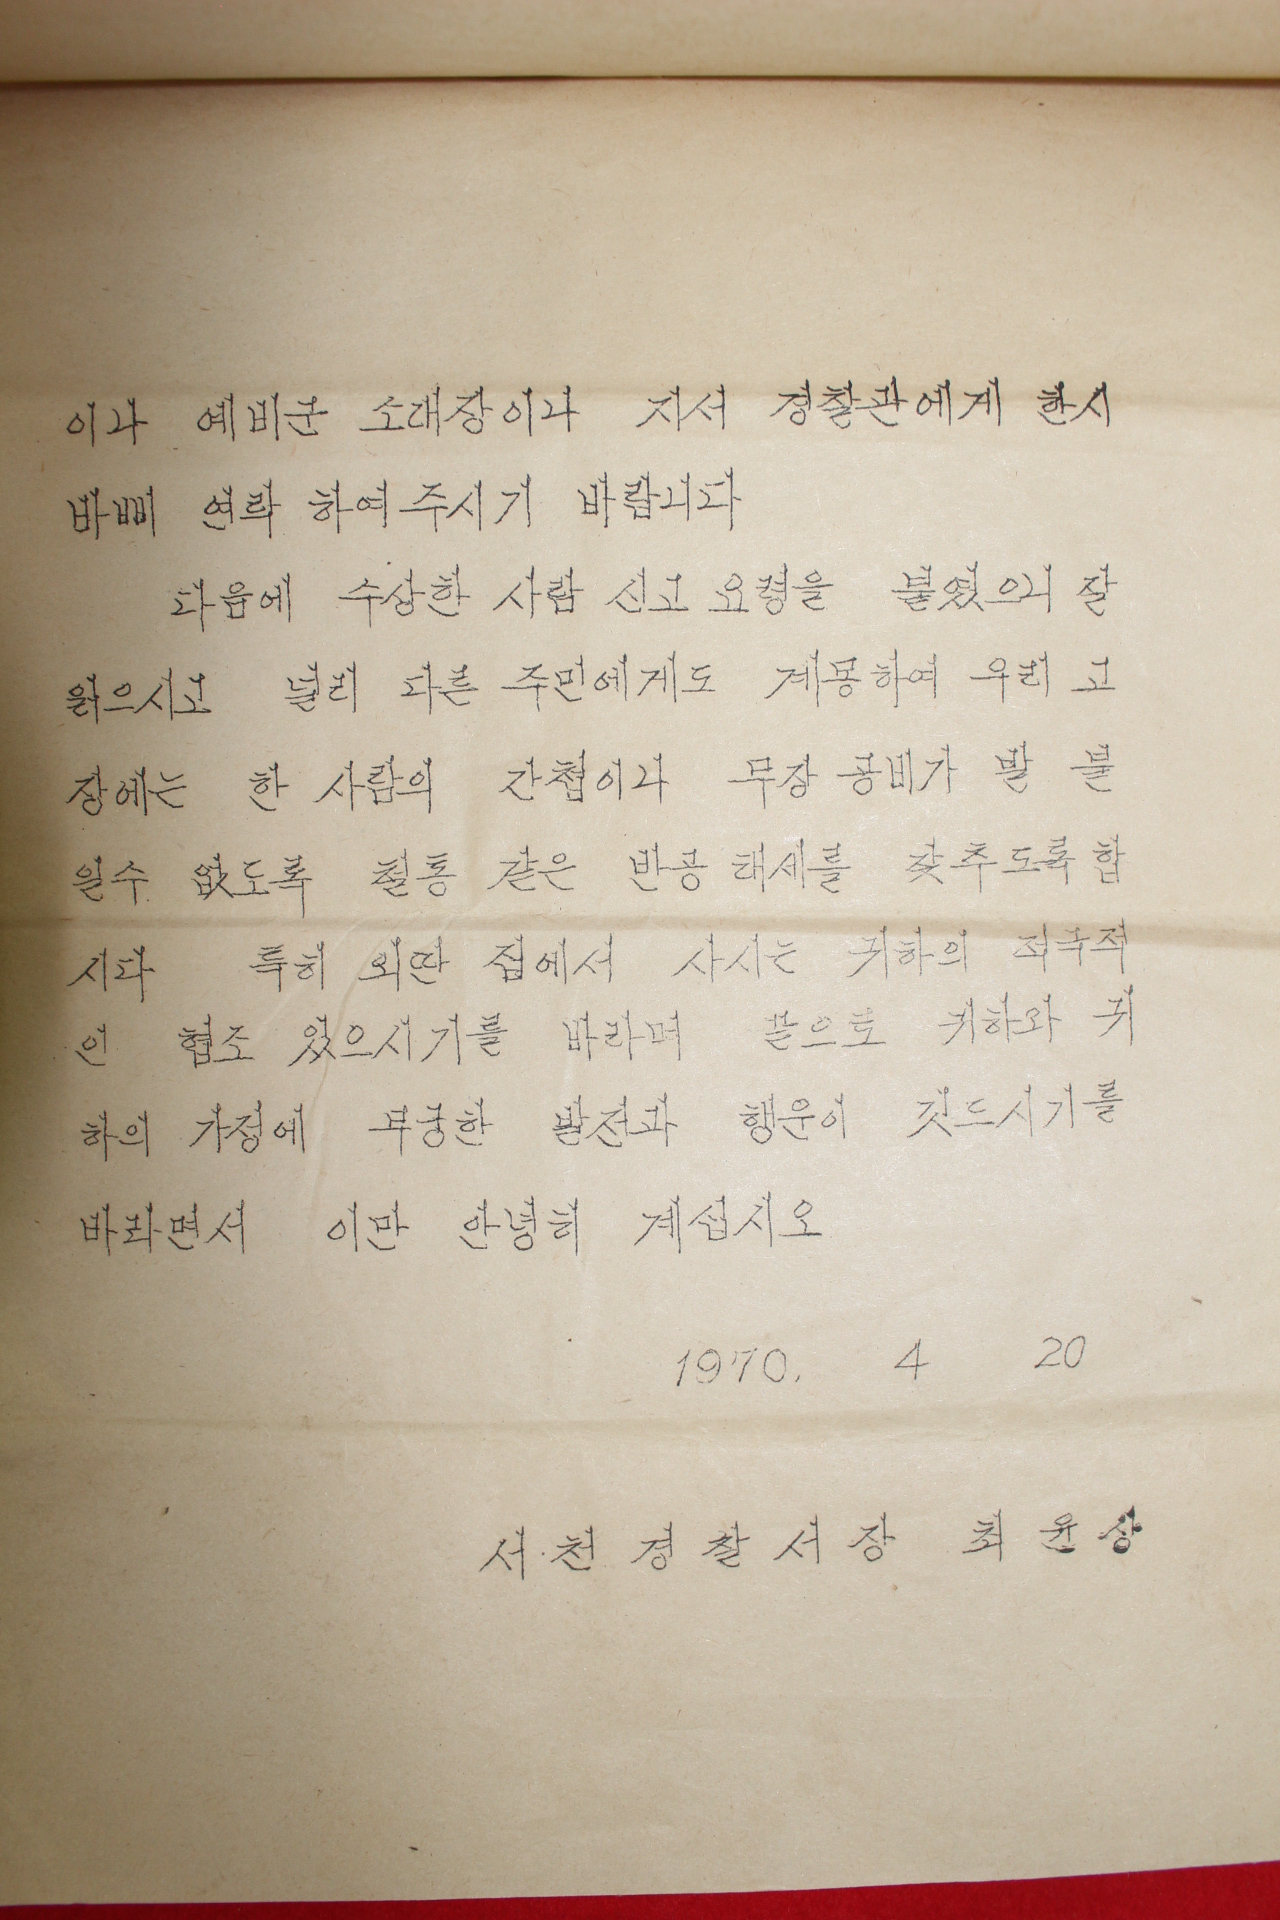 이나 예비군 소대장이나 지서 경찰관에게 한시
바삐 연락 하여 주시기 바랍니다
다음에 수상한 사람 신고 요령을 붙였으니 잘
읽으시고 널리 다른 주민에게도 계몽하여 우리 고
장에는 한 사람의 간첩이나 무장 공비가 발 붙
일수 없도록 철통 같은 반공 태세를 갖추도록 합
시다 특히 외딴 집에서 사시는 귀하의 적극적
인 협조 있으시기를 바라며 끝으로 귀하와 귀
하의 가정에 무궁한 발전과 행운이 깃드시기를
바라면서 이만 안녕히 계십시오
1970. 4 20
서천경찰서장 최윤상